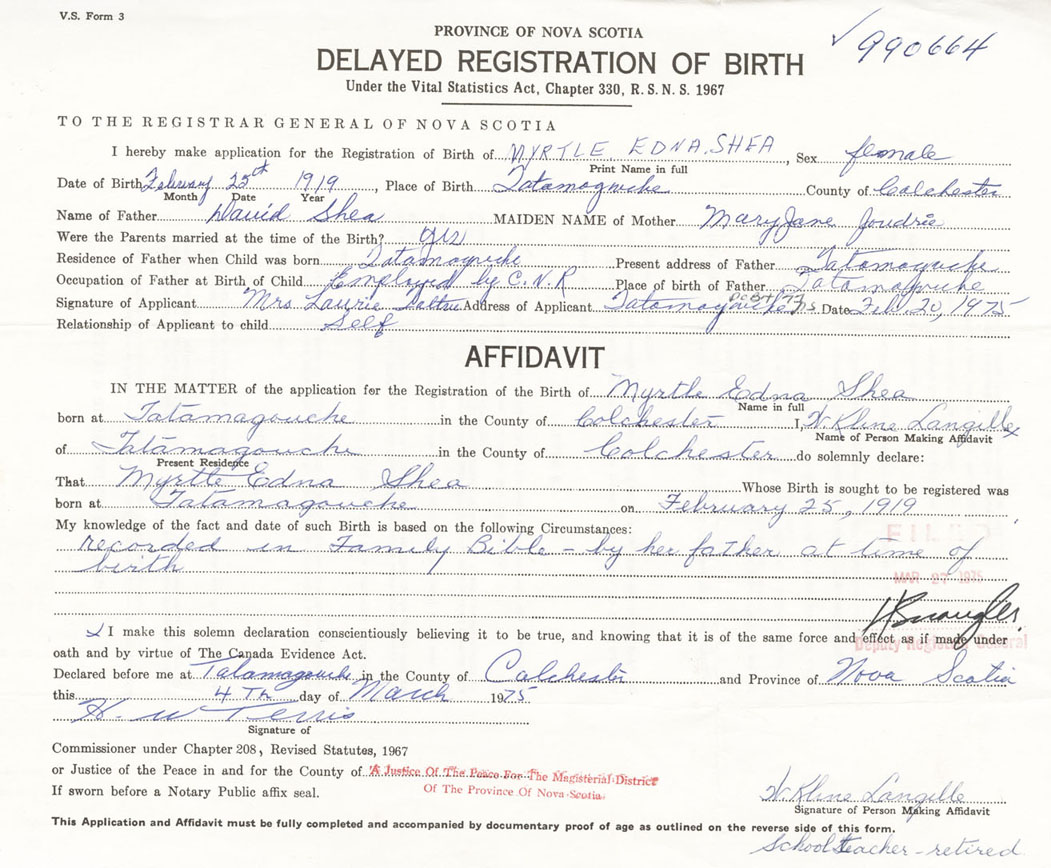 V.S. Form 3
PROVINCE OF NOVA SCOTIA
✓990664
DELAYED REGISTRATION OF BIRTH
Under the Vital Statistics Act, Chapter 330, R. S. N. S. 1967
TO THE REGISTRAR GENERAL OF NOVA SCOTIA
I hereby make application for the Registration of Birth of MYRTLE EDNA SHEA, Sex female
Print Name in full
Date of Birth February 25th 1919, Place of Birth Tatamagouche County of Colchester
Month Date Year
Name of Father David Shea MAIDEN NAME of Mother Mary Jane Joudrie
Were the Parents married at the time of the Birth? yes
Residence of Father when Child was born Tatamagouche Present address of Father Tatamagouche
Occupation of Father at Birth of Child Employed by C.N.R Place of birth of Father Tatamagouche
Signature of Applicant Mrs Laurie Address of Applicant Tatamagouche N.S. Date Feb. 20, 1975
Relationship of Applicant to child Self
AFFIDAVIT
IN THE MATTER of the application for the Registration of the Birth of Myrtle Edna Shea
Name in full
born at Tatamagouche in the County of Colchester I, W. Kline Langille
Name of Person Making Affidavit
of Tatamagouche in the County of Colchester do solemnly declare:
Present Residence
That Myrtle Edna Shea Whose Birth is sought to be registered was
born at Tatamagouche on February 25, 1919
My knowledge of the fact and date of such Birth is based on the following Circumstances:
recorded in Family Bible - by her father at time of
birth
FILED
MAR 27 1975
I make this solemn declaration conscientiously believing it to be true, and knowing that it is of the same force and effect as if made under
Deputy Registrar General
oath and by virtue of The Canada Evidence Act.
Declared before me at Tatamagouche in the County of Colchester and Province of Nova Scotia
this 4TH day of March 1975
H. W. Ferris
Signature of
Commissioner under Chapter 208, Revised Statutes, 1967
or Justice of the Peace in and for the County of A Justice Of The Peace For The Magisterial District
Of The Province Of Nova Scotia
If sworn before a Notary Public affix seal.
W. Kline Langille
Signature of Person Making Affidavit
This Application and Affidavit must be fully completed and accompanied by documentary proof of age as outlined on the reverse side of this form.
School teacher - retired